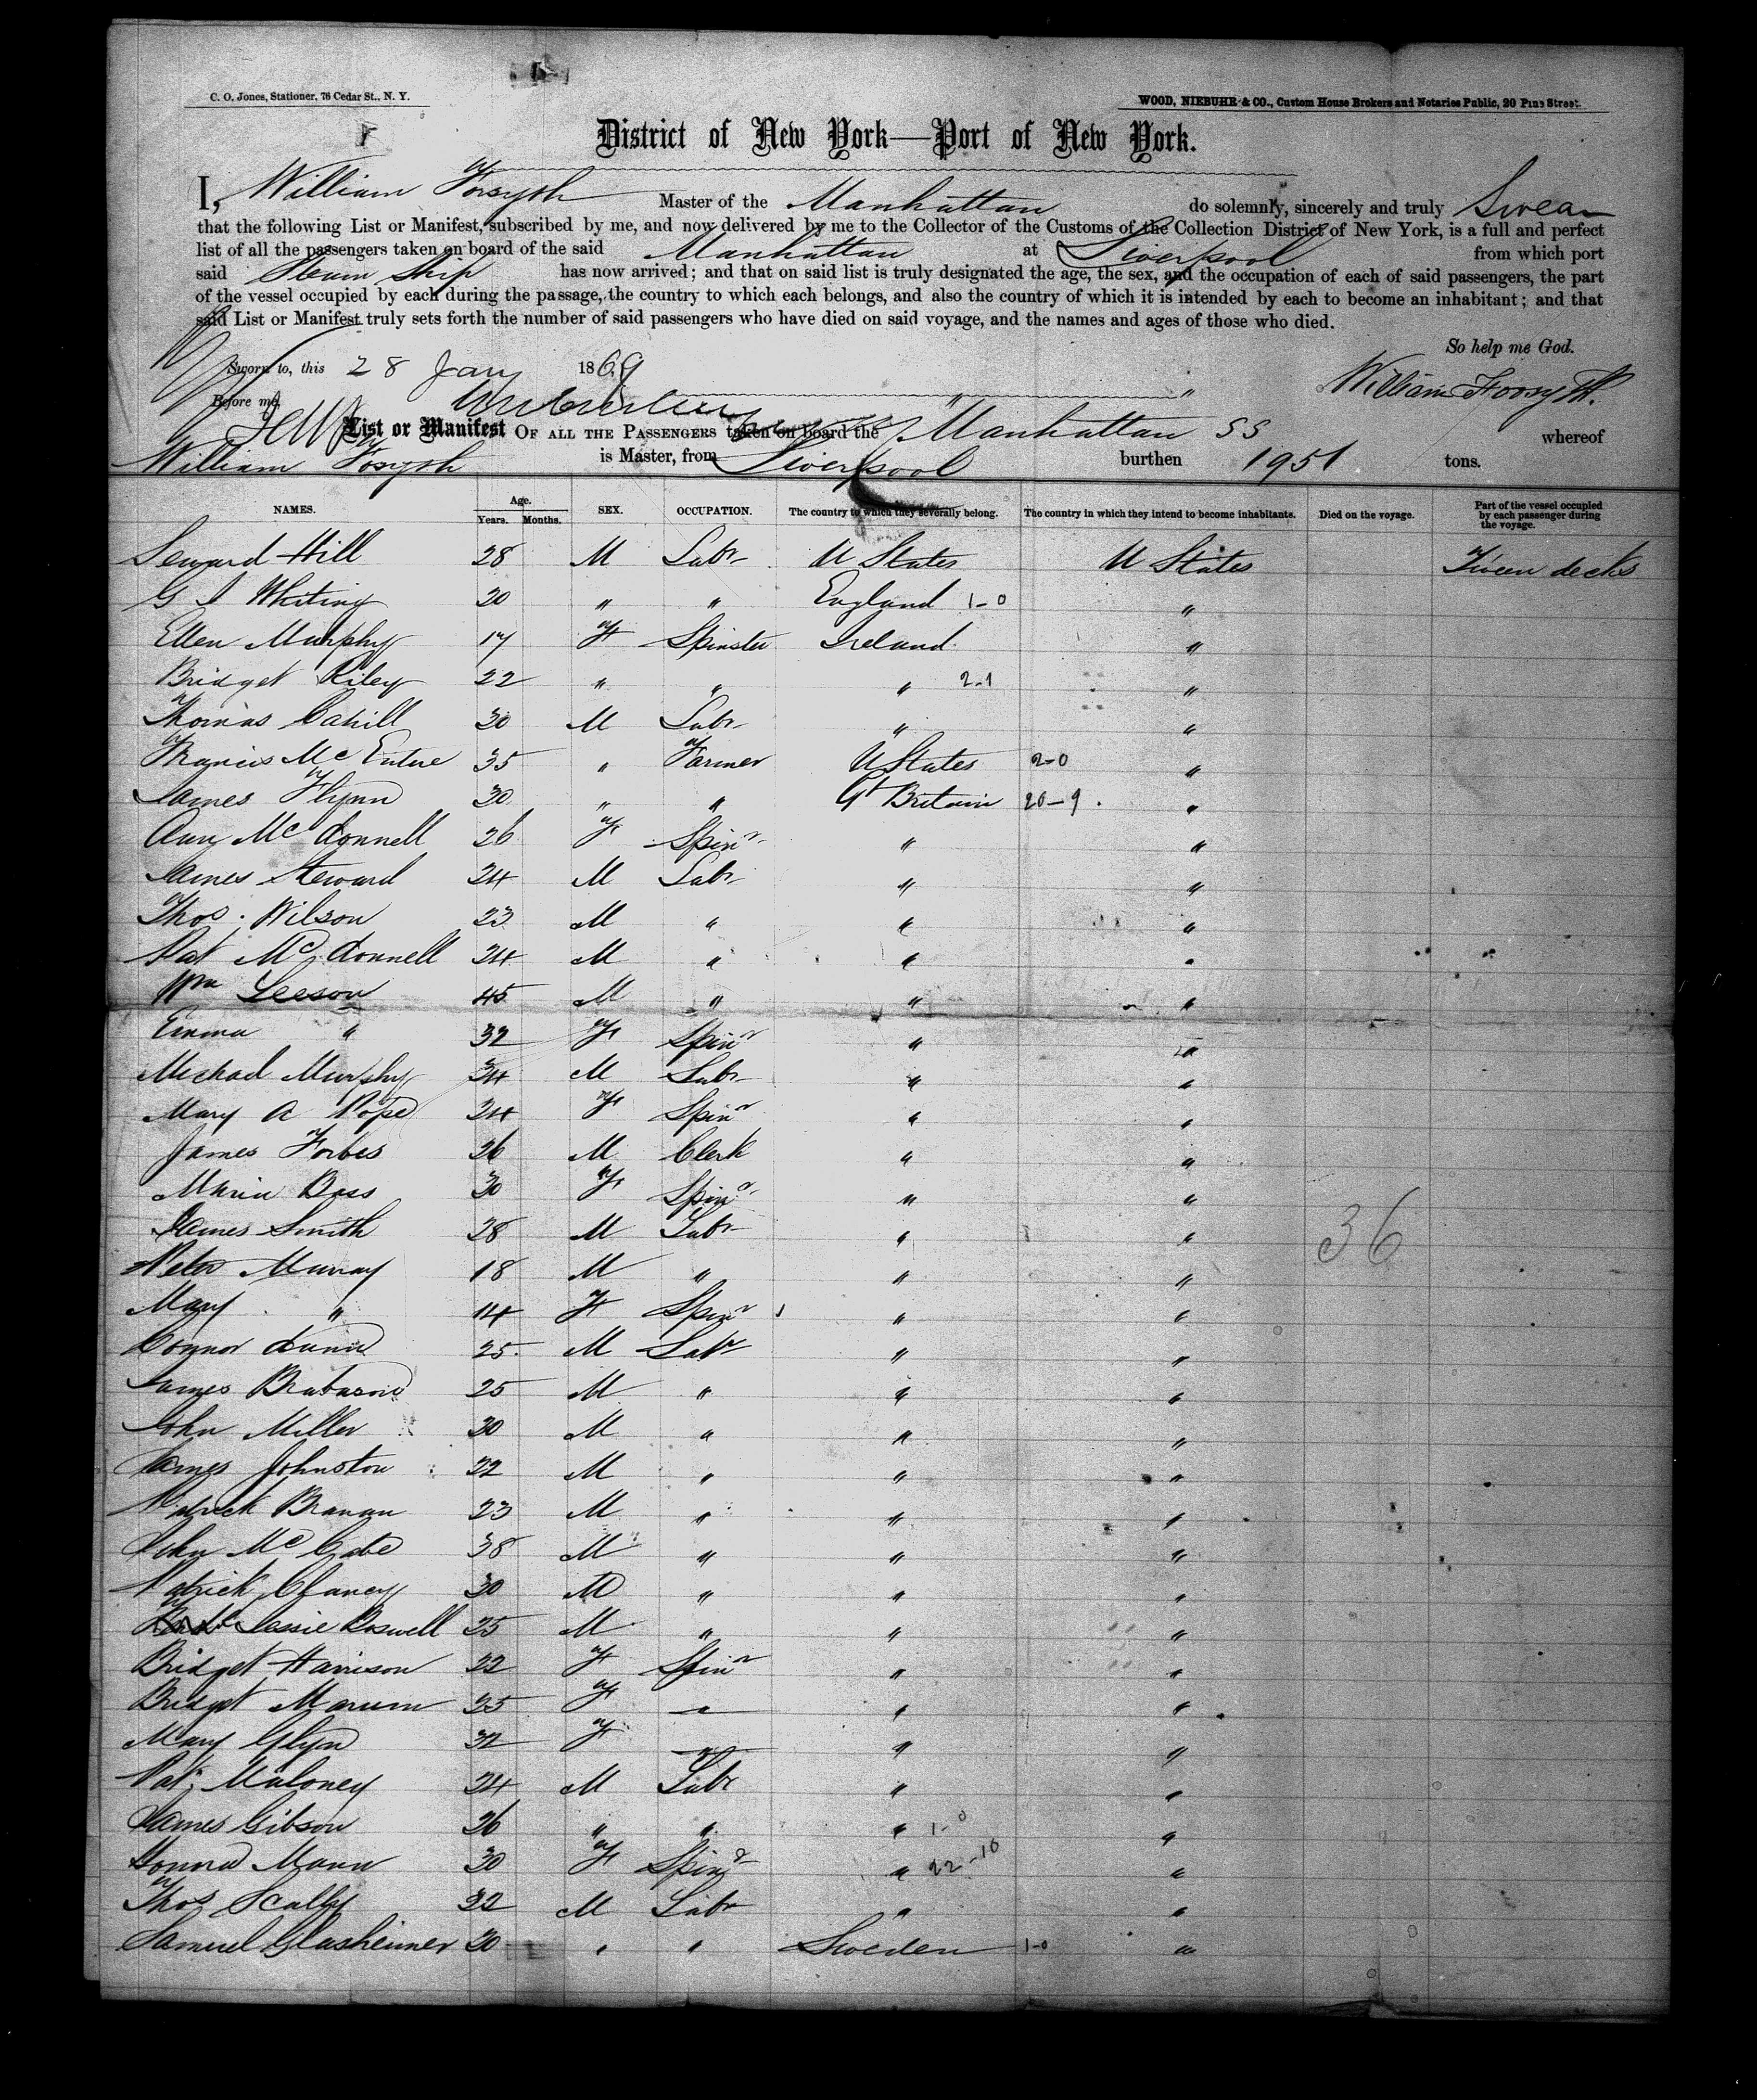 C. O. Jones, Stationer, 76 Cedar St., N. Y.
WOOD, NIEBUHR & CO., Custom House Brokers and Notaries Public, 20 Pine Street.
District of New York—Port of New York.
I, William Forsyth Master of the Manhattan do solemnly, sincerely and truly Swear
that the following List or Manifest, subscribed by me, and now delivered by me to the Collector of the Customs of the Collection District of New York, is a full and perfect
list of all the passengers taken on board of the said Manhattan at Liverpool from which port
said Steam Ship has now arrived; and that on said list is truly designated the age, the sex, and the occupation of each of said passengers, the part
of the vessel occupied by each during the passage, the country to which each belongs, and also the country of which it is intended by each to become an inhabitant; and that
said List or Manifest truly sets forth the number of said passengers who have died on said voyage, and the names and ages of those who died.
So help me God.
Sworn to, this 28 Jany 1869 William Forsyth.
Before me,
List or Manifest OF ALL THE PASSENGERS taken on board the Manhattan SS whereof
William Forsyth is Master, from Liverpool burthen 1951 tons.
NAMES. Age. Years. Months. SEX. OCCUPATION. The country to which they severally belong. The country in which they intend to become inhabitants. Died on the voyage. Part of the vessel occupied by each passenger during the voyage.
Seward Hill 28 M Labr U States U States Tween decks
G I Whiting 20 " " England 1-0 "
Ellen Murphy 17 F Spinster Ireland "
Bridget Riley 22 " " " 2-1 "
Thomas Cahill 30 M Labr " "
Francis McEntire 35 " Farmer U States 2-0 "
James Flynn 30 " " Gt Britain 20-9 "
Ann McDonnell 26 F Spinr " "
James Steward 24 M Labr " "
Thos. Wilson 23 M " " "
Pat McDonnell 24 M " " "
Wm Leeson 45 M " " "
Emma " 32 F Spinr " "
Michael Murphy 34 M Labr " "
Mary A Pope 24 F Spinr " "
James Forbes 26 M Clerk " "
Maria Doss 30 F Spinr " "
James Smith 28 M Labr " " 36
Peter Murray 18 M " " "
Mary " 14 F Spinr " "
Connor Dunn 25 M Labr " "
James Brabason 25 M " " "
John Miller 30 M " " "
James Johnston 22 M " " "
Patrick Branan 23 M " " "
John McCabe 38 M " " "
Patrick Clancy 30 M " " "
Jessie Boswell 25 M " " "
Bridget Harrison 22 F Spinr " "
Bridget Marum 25 F " " "
Mary Glyn 32 F " " "
Pat Maloney 24 M Labr " "
James Gibson 26 " " " 1-0 "
Honora Mann 30 F Spinr " 22-10 "
Thos Scally 22 M Labr " "
Samuel Glasheimer 20 " " Sweden 1-0 "